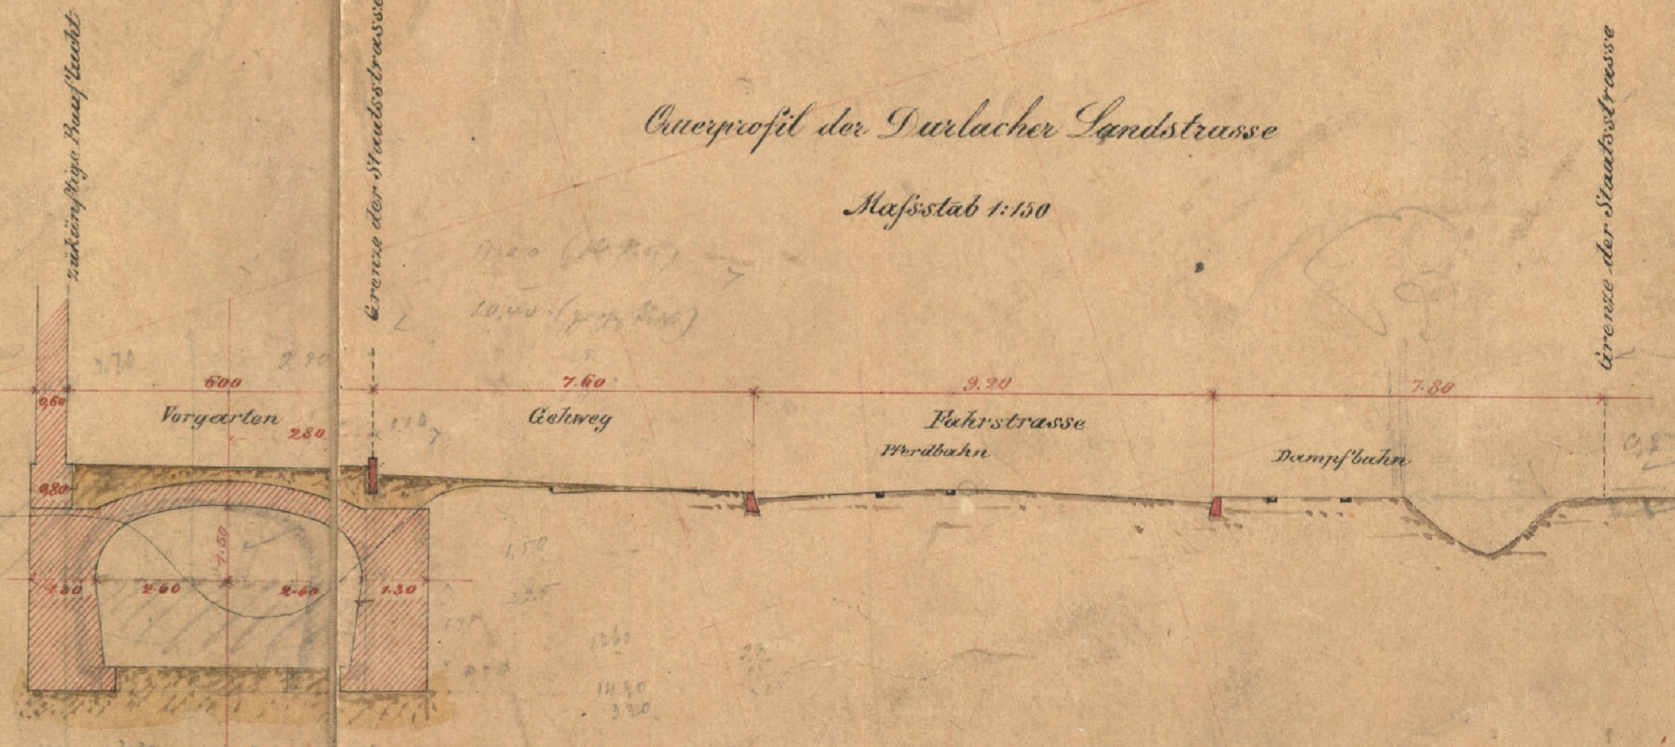 zukünftige Bauflucht
Grenze der Staatsstrasse
Querprofil der Durlacher Landstrasse
Maſsstab 1:150
Grenze der Staatsstrasse
600
7.60
9.20
7.80
0,60
Vorgarten
Gehweg
Fahrstrasse
280
Pferdbahn
Dampfbahn
0,80
1.50
1.30
2.60
2.60
1.30